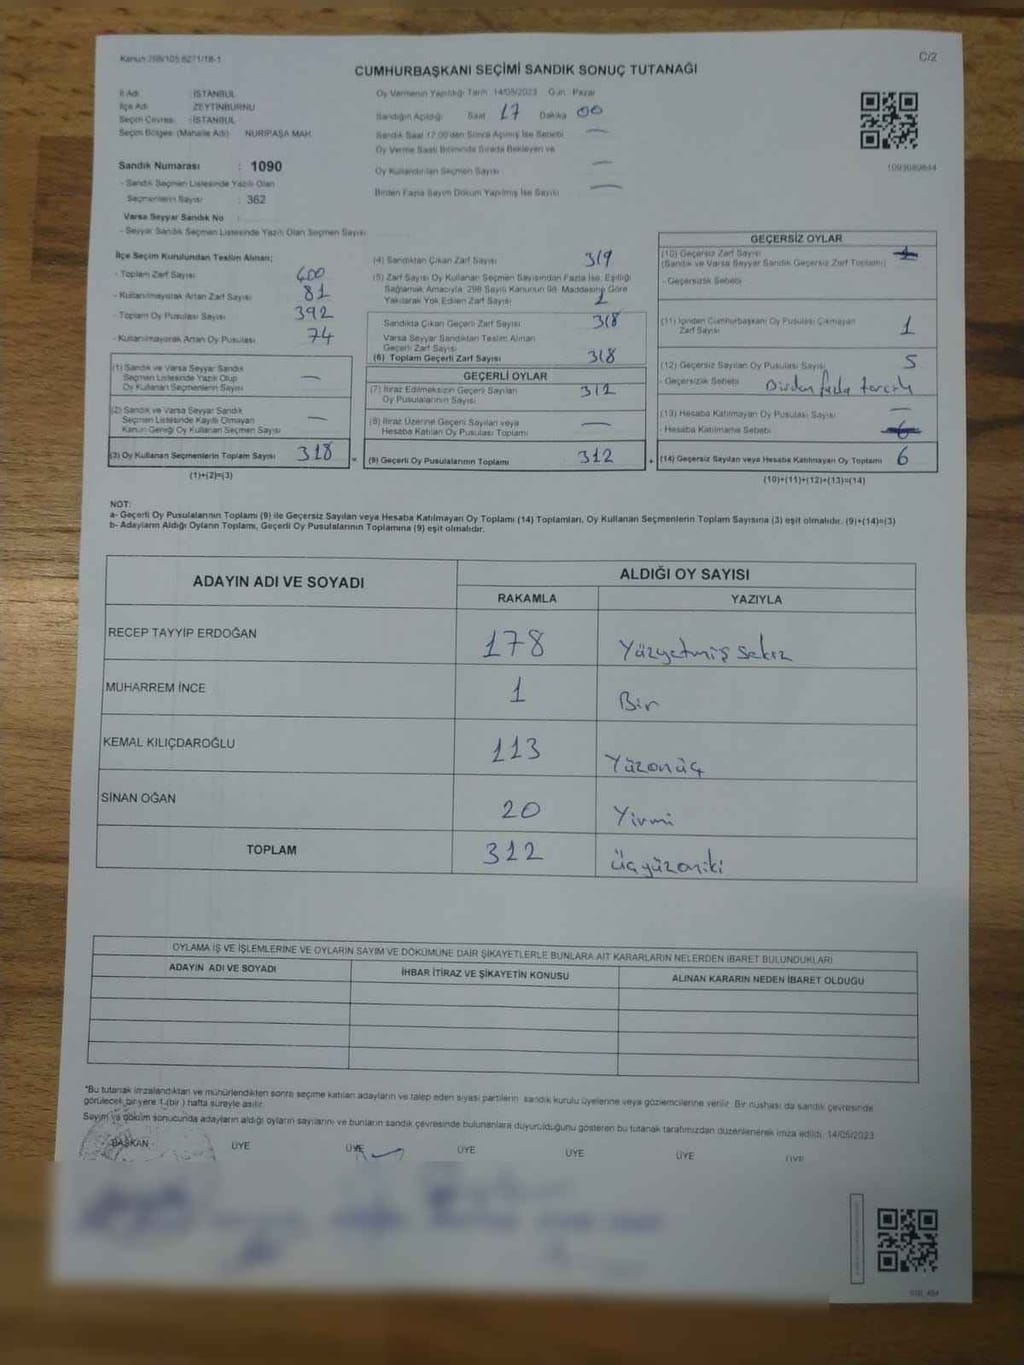 Kanun 298/105 6271/18-1
C/2
CUMHURBAŞKANI SEÇİMİ SANDIK SONUÇ TUTANAĞI
İl Adı : İSTANBUL
İlçe Adı : ZEYTİNBURNU
Seçim Çevresi : İSTANBUL
Seçim Bölgesi (Mahalle Adı) NURİPAŞA MAH.
Sandık Numarası : 1090
- Sandık Seçmen Listesinde Yazılı Olan
Seçmenlerin Sayısı : 362
Varsa Seyyar Sandık No
- Seyyar Sandık Seçmen Listesinde Yazılı Olan Seçmen Sayısı
Oy Vermenin Yapıldığı Tarih 14/05/2023 Gün: Pazar
Sandığın Açıldığı Saat 17 Dakika 00
Sandık Saat 17.00'den Sonra Açılmış İse Sebebi —
Oy Verme Saati Bitiminde Sırada Bekleyen ve
Oy Kullandırılan Seçmen Sayısı —
Birden Fazla Sayım Döküm Yapılmış İse Sayısı —
1093089844
İlçe Seçim Kurulundan Teslim Alınan;
- Toplam Zarf Sayısı 400
- Kullanılmayarak Artan Zarf Sayısı 81
- Toplam Oy Pusulası Sayısı 392
- Kullanılmayarak Artan Oy Pusulası 74
(1) Sandık ve Varsa Seyyar Sandık
Seçmen Listesinde Yazılı Olup
Oy Kullanan Seçmenlerin Sayısı —
(2) Sandık ve Varsa Seyyar Sandık
Seçmen Listesinde Kayıtlı Olmayan
Kanun Gereği Oy Kullanan Seçmen Sayısı —
(3) Oy Kullanan Seçmenlerin Toplam Sayısı 318
(1)+(2)=(3)
(4) Sandıktan Çıkan Zarf Sayısı 319
(5) Zarf Sayısı Oy Kullanan Seçmen Sayısından Fazla İse, Eşitliği
Sağlamak Amacıyla, 298 Sayılı Kanunun 98. Maddesine Göre
Yakılarak Yok Edilen Zarf Sayısı 1
Sandıkta Çıkan Geçerli Zarf Sayısı 318
Varsa Seyyar Sandıktan Teslim Alınan
Geçerli Zarf Sayısı
(6) Toplam Geçerli Zarf Sayısı 318
GEÇERLİ OYLAR
(7) İtiraz Edilmeksizin Geçerli Sayılan
Oy Pusulalarının Sayısı 312
(8) İtiraz Üzerine Geçerli Sayılan veya
Hesaba Katılan Oy Pusulası Toplamı —
(9) Geçerli Oy Pusulalarının Toplamı 312
GEÇERSİZ OYLAR
(10) Geçersiz Zarf Sayısı
(Sandık ve Varsa Seyyar Sandık Geçersiz Zarf Toplamı)
- Geçersizlik Sebebi
(11) İçinden Cumhurbaşkanı Oy Pusulası Çıkmayan
Zarf Sayısı 1
(12) Geçersiz Sayılan Oy Pusulası Sayısı 5
- Geçersizlik Sebebi Birden fazla tercih
(13) Hesaba Katılmayan Oy Pusulası Sayısı —
- Hesaba Katılmama Sebebi
(14) Geçersiz Sayılan veya Hesaba Katılmayan Oy Toplamı 6
(10)+(11)+(12)+(13)=(14)
NOT:
a- Geçerli Oy Pusulalarının Toplamı (9) ile Geçersiz Sayılan veya Hesaba Katılmayan Oy Toplamı (14) Toplamları, Oy Kullanan Seçmenlerin Toplam Sayısına (3) eşit olmalıdır. (9)+(14)=(3)
b- Adayların Aldığı Oyların Toplamı, Geçerli Oy Pusulalarının Toplamına (9) eşit olmalıdır.
ADAYIN ADI VE SOYADI
ALDIĞI OY SAYISI
RAKAMLA YAZIYLA
RECEP TAYYİP ERDOĞAN 178 Yüzyetmiş sekiz
MUHARREM İNCE 1 Bir
KEMAL KILIÇDAROĞLU 113 Yüzonüç
SİNAN OĞAN 20 Yirmi
TOPLAM 312 Üçyüzoniki
OYLAMA İŞ VE İŞLEMLERİNE VE OYLARIN SAYIM VE DÖKÜMÜNE DAİR ŞİKAYETLERLE BUNLARA AİT KARARLARIN NELERDEN İBARET BULUNDUKLARI
ADAYIN ADI VE SOYADI İHBAR İTİRAZ VE ŞİKAYETİN KONUSU ALINAN KARARIN NEDEN İBARET OLDUĞU
*Bu tutanak imzalandıktan ve mühürlendikten sonra seçime katılan adayların ve talep eden siyasi partilerin sandık kurulu üyelerine veya gözlemcilerine verilir. Bir nüshası da sandık çevresinde
görülecek bir yere 1 (bir) hafta süreyle asılır.
Sayım ve döküm sonucunda adayların aldığı oyların sayılarını ve bunların sandık çevresinde bulunanlara duyurulduğunu gösteren bu tutanak tarafımızdan düzenlenerek imza edildi. 14/05/2023
BAŞKAN ÜYE ÜYE ÜYE ÜYE ÜYE ÜYE